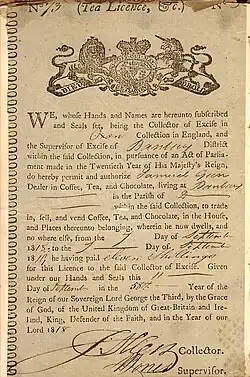 No 73 (Tea Licence, &c.) N
DIEU ET MON DROIT
WE, whose Hands and Names are hereunto subscribed
and Seals set, being the Collector of Excise in
Oxon Collection in England, and
the Supervisor of Excise of Banbury District
within the said Collection, in pursuance of an Act of Parlia-
ment made in the Twentieth Year of His Majesty's Reign,
do hereby permit and authorize Samuel
Dealer in Coffee, Tea, and Chocolate, living at Banbury
in the Parish of
within the said Collection, to trade
in, sell, and vend Coffee, Tea, and Chocolate, in the House,
and Places thereunto belonging, wherein he now dwells, and
no where else, from the Day of
1818 to the Day of
18 he having paid Eleven Shillings
for this Licence to the said Collector of Excise. Given
under our Hands and Seals this 11
Day of in the 58th Year of the
Reign of our Sovereign Lord George the Third, by the Grace
of God, of the United Kingdom of Great-Britain and Ire-
land, King, Defender of the Faith, and in the Year of our
Lord 1818
Collector.
Supervisor.